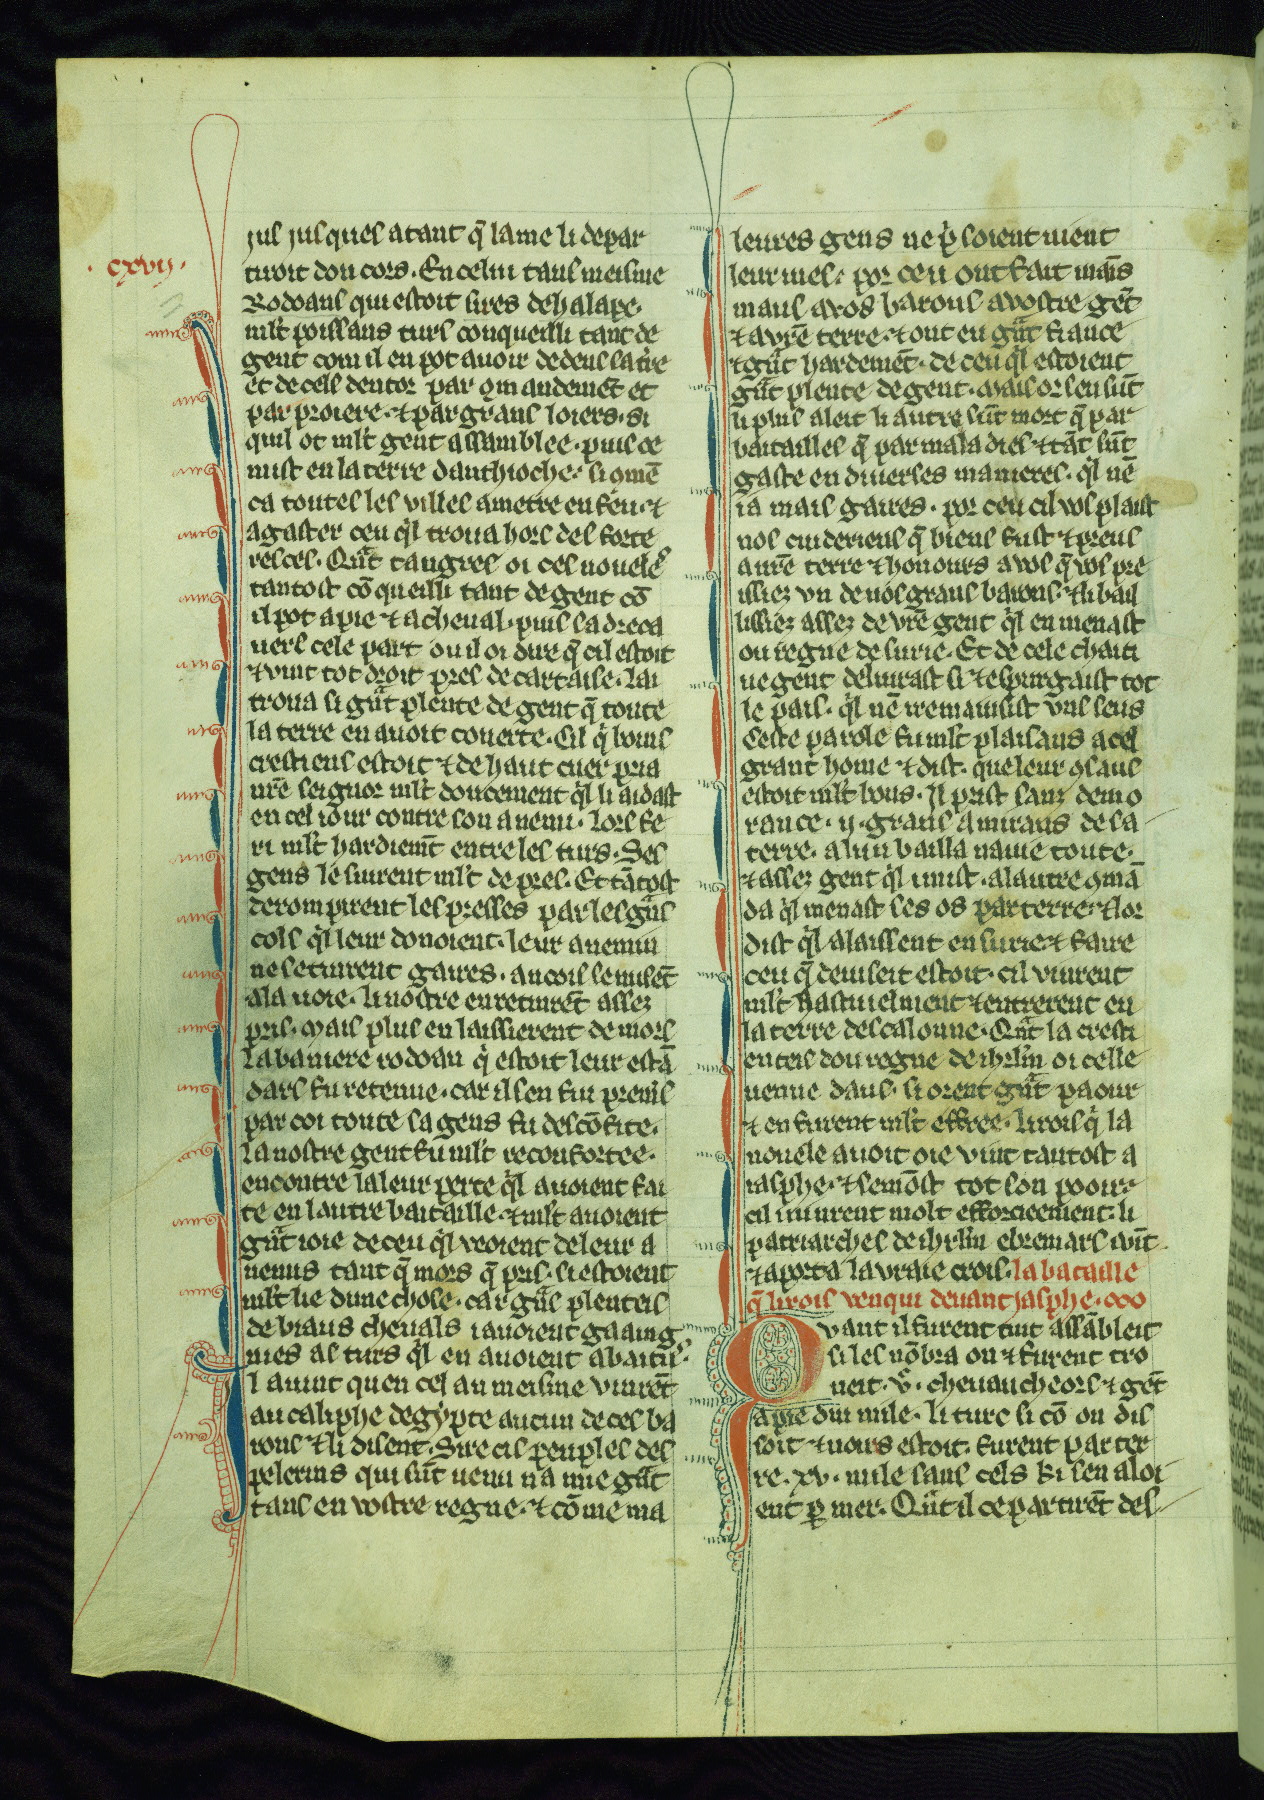 · cxvij ·
jus jusques atant q̃ lame li depar
tiroit dou cors. En celui tans meisme
Rodoans qui estoit sires de halape.
mlt poissans turs conqueilli tant de
gent com il en pot auoir dedens sa tre
et de cels dentor par ꝯmandemẽt et
par proiere. ⁊ par grans loiers. si
quil ot mlt gent assamblee. puis ce
mist en la terre danthioche. si ꝯmẽ
ca toutes les villes a metre en feu. ⁊
a gaster ceu ql troua hors des forte
resces. Qũt tangres oi ces noueles
tantost cõ queilli tant de gent cõ
il pot a pie ⁊ a cheual. puis sa dreca
uers cele part ou il oi dire q̃ cil estoit
⁊ vint tot droit pres de cartaise. lai
troua si gũt plente de gent q̃ toute
la terre en auoit couerte. Cil q̇ bons
crestiens estoit ⁊ de haut cuer pria
nrẽ seignor mlt doucement ql li aidast
en cel iour contre son anemi. lors fe
ri mlt hardiemt entre les turs. Ses
gens le siurent mlt de pres. Et tãtost
derompirent les presses par les gãs
cols ql leur donoient. leur anemin
ne se tinrent gaires. ancois se mistẽt
a la uoie. li nostre en retinrẽt assez
pris. Mais plus en laissierent de mors
la baniere rodoan q̇ estoit leur estã
dars fu retenue. car il sen fui premˢs
par coi toute sa gens fu descõfite.
la nostre gent fu mlt reconfortee.
encontre la leur perte ql auoient fai
te en lautre bataille. ⁊ mlt auoient
gũt ioie de ceu ql veoient de leur a
nemis tant q̃ mors q̃ pris. si estoient
mlt lie dune chose. car gãs plenteis
de biaus cheuals i auoient gaaing
nies as turs ql en auoient abatus.
l auint quen cel an meisme vinrẽt
au caliphe degypte aucun de ces ba
rons ⁊ li disent. Sire cis peuples des
pelerins qui sũt uenu na mie gãt
tans en vostre regne. ⁊ cõme ma
leures gens ne pˢsoient nient
leur uies. por ceu ont fait mais
maus a vos barons a vostre gẽt
⁊ a vrẽ terre. ⁊ ont eu gũt fiance
⁊ gũt hardemẽt. de ceu ql estoient
gũt plente de gent. Mais or sen sũt
li plus aleit li autre sũt mort q̃ par
batailles q̃ par maladies. ⁊ tãt sũt
gaste en diuerses manieres. ql nẽ
ia mais gaires. por ceu cil vos plaist
nos cuideriens q̃ biens fust ⁊ preus
a urẽ terre ⁊ honours a vos q̃ vos pre
issiez vn de vos grans barons. ⁊ li bail
lissiez assez de vrẽ gent ql en menast
ou regne de surie. Et de cele chaiti
ue gent deliurast si ⁊ espurgaist tot
le pais. ql nẽ i remainsist vns seus
Ceste parole fu mlt plaisans a cel
grant home ⁊ dist. que leur ꝯsaus
estoit mlt bons. Il prist sanz demo
rance. ij. grans amiraus de sa
terre. a lun bailla nauie toute.
⁊ assez gent ql i mist. a lautre ꝯmã
da ql menast ses os par terre. ⁊ lor
dist ql alaissent en surie ⁊ faire
ceu q̃ deuiseit estoit. cil vinrent
mlt hastiuelment ⁊ entrerent en
la terre descalonne. Qũt la cresti
enteis dou regne de ihrlm oi celle
uenue dans. si orent gũt paour
⁊ en furent mlt effree. li rois q̇ la
nouele auoit oie vint tantost a
iasphe. ⁊ semõst tot son pooir.
cil i uinrent molt efforcieement. li
patriarches de ihrlm ebremars i vĩt
⁊ aporta la vraie crois. la bataille
q̃ li rois venqui deuant jasphe. ooo
Quant il furent tuit assãbleit
si les nõbra on ⁊ furent tro
ueit. vᶜ. cheuaucheors ⁊ gẽt
a pie dui mile. li turc si cõ on dis
soit ⁊ uoirs estoit. furent par ter
re. xv. mile sans cels ki sen aloi
ent p mer. Qũt il ce partirẽt des